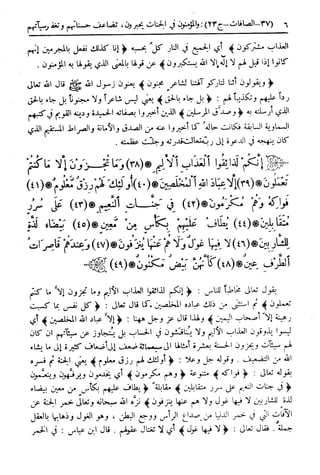 ٦ (٣٧)-الصافات-ج(٢٣): والمؤمنون في الجنات يحبرون، تضاعف حسناتهم وتغفر سيئاتهم
العذاب مشتركون﴾ أي الجميع في النار كل بحسبه ﴿إنا كذلك نفعل بالمجرمين إنهم
كانوا إذا قيل لهم لا إله إلا الله يستكبرون﴾ عن قولها بالمعنى الذي يقولها به المؤمنون.
﴿ويقولون أئنا لتاركو آلهتنا لشاعر مجنون﴾ يعنون رسول الله ﷺ قال الله تعالى
رداً عليهم وتكذيباً لهم: ﴿بل جاء بالحق﴾ يعني ليس شاعراً ولا مجنوناً بل جاء بالحق
الذي أرسلته به ﴿وصدق المرسلين﴾ الذين أخبروا بصفاته الحميدة ودينه القويم في كتبهم
السماوية السابقة فكانت حاله كما أخبروا عنه من الصدق والأمانة والصراط المستقيم الذي
كان ينهجه في الدعوة إلى ربه تعالت قدرته وجلت عظمته.
﴿إِنَّكُمْ لَذَائِقُوا الْعَذَابِ الْأَلِيمِ ﴿٣٨﴾ وَمَا تُجْزَوْنَ إِلَّا مَا كُنتُمْ
تَعْمَلُونَ ﴿٣٩﴾ إِلَّا عِبَادَ اللَّهِ الْمُخْلَصِينَ ﴿٤٠﴾ أُولَئِكَ لَهُمْ رِزْقٌ مَّعْلُومٌ ﴿٤١﴾
فَوَاكِهُ وَهُم مُّكْرَمُونَ ﴿٤٢﴾ فِي جَنَّاتِ النَّعِيمِ ﴿٤٣﴾ عَلَى سُرُرٍ
مُّتَقَابِلِينَ ﴿٤٤﴾ يُطَافُ عَلَيْهِم بِكَأْسٍ مِّن مَّعِينٍ ﴿٤٥﴾ بَيْضَاءَ لَذَّةٍ
لِّلشَّارِبِينَ ﴿٤٦﴾ لَا فِيهَا غَوْلٌ وَلَا هُمْ عَنْهَا يُنزَفُونَ ﴿٤٧﴾ وَعِندَهُمْ قَاصِرَاتُ
الطَّرْفِ عِينٌ ﴿٤٨﴾ كَأَنَّهُنَّ بَيْضٌ مَّكْنُونٌ ﴿٤٩﴾
يقول تعالى مخاطباً للناس: ﴿إنكم لذائقوا العذاب الأليم وما تجزون إلا ما كنتم
تعملون﴾ ثم استثنى من ذلك عباده المخلصين، كما قال تعالى: ﴿كل نفس بما كسبت
رهينة إلا أصحاب اليمين﴾ ولهذا قال عز وجل ههنا: ﴿إلا عباد الله المخلصين﴾ أي
ليسوا يذوقون العذاب الأليم ولا يناقشون في الحساب بل يتجاوز عن سيئاتهم ان كان
لهم سيئات ويجزون الحسنة بعشرة أمثالها الى سبعمائة ضعف إلى أضعاف كثيرة إلى ما يشاء
الله من التضعيف. وقوله جل وعلا: ﴿أولئك لهم رزق معلوم﴾ يعني الجنة ثم فسره
بقوله تعالى: ﴿فواكه﴾ متنوعة ﴿وهم مكرمون﴾ أي يخدمون ويرفهون وينعمون
﴿في جنات النعيم على سرر متقابلين﴾ مقابلة ﴿يطاف عليهم بكأس من معين بيضاء
لذة للشاربين لا فيها غول ولا هم عنها ينزفون﴾ نزه الله سبحانه وتعالى خمر الجنة عن
الآفات التي في خمر الدنيا من صداع الرأس ووجع البطن، وهو الغول وذهابها بالعقل
جملة. فقال تعالى: ﴿لا فيها غول﴾ أي لا تغتال عقولهم. قال ابن عباس: في الخمر